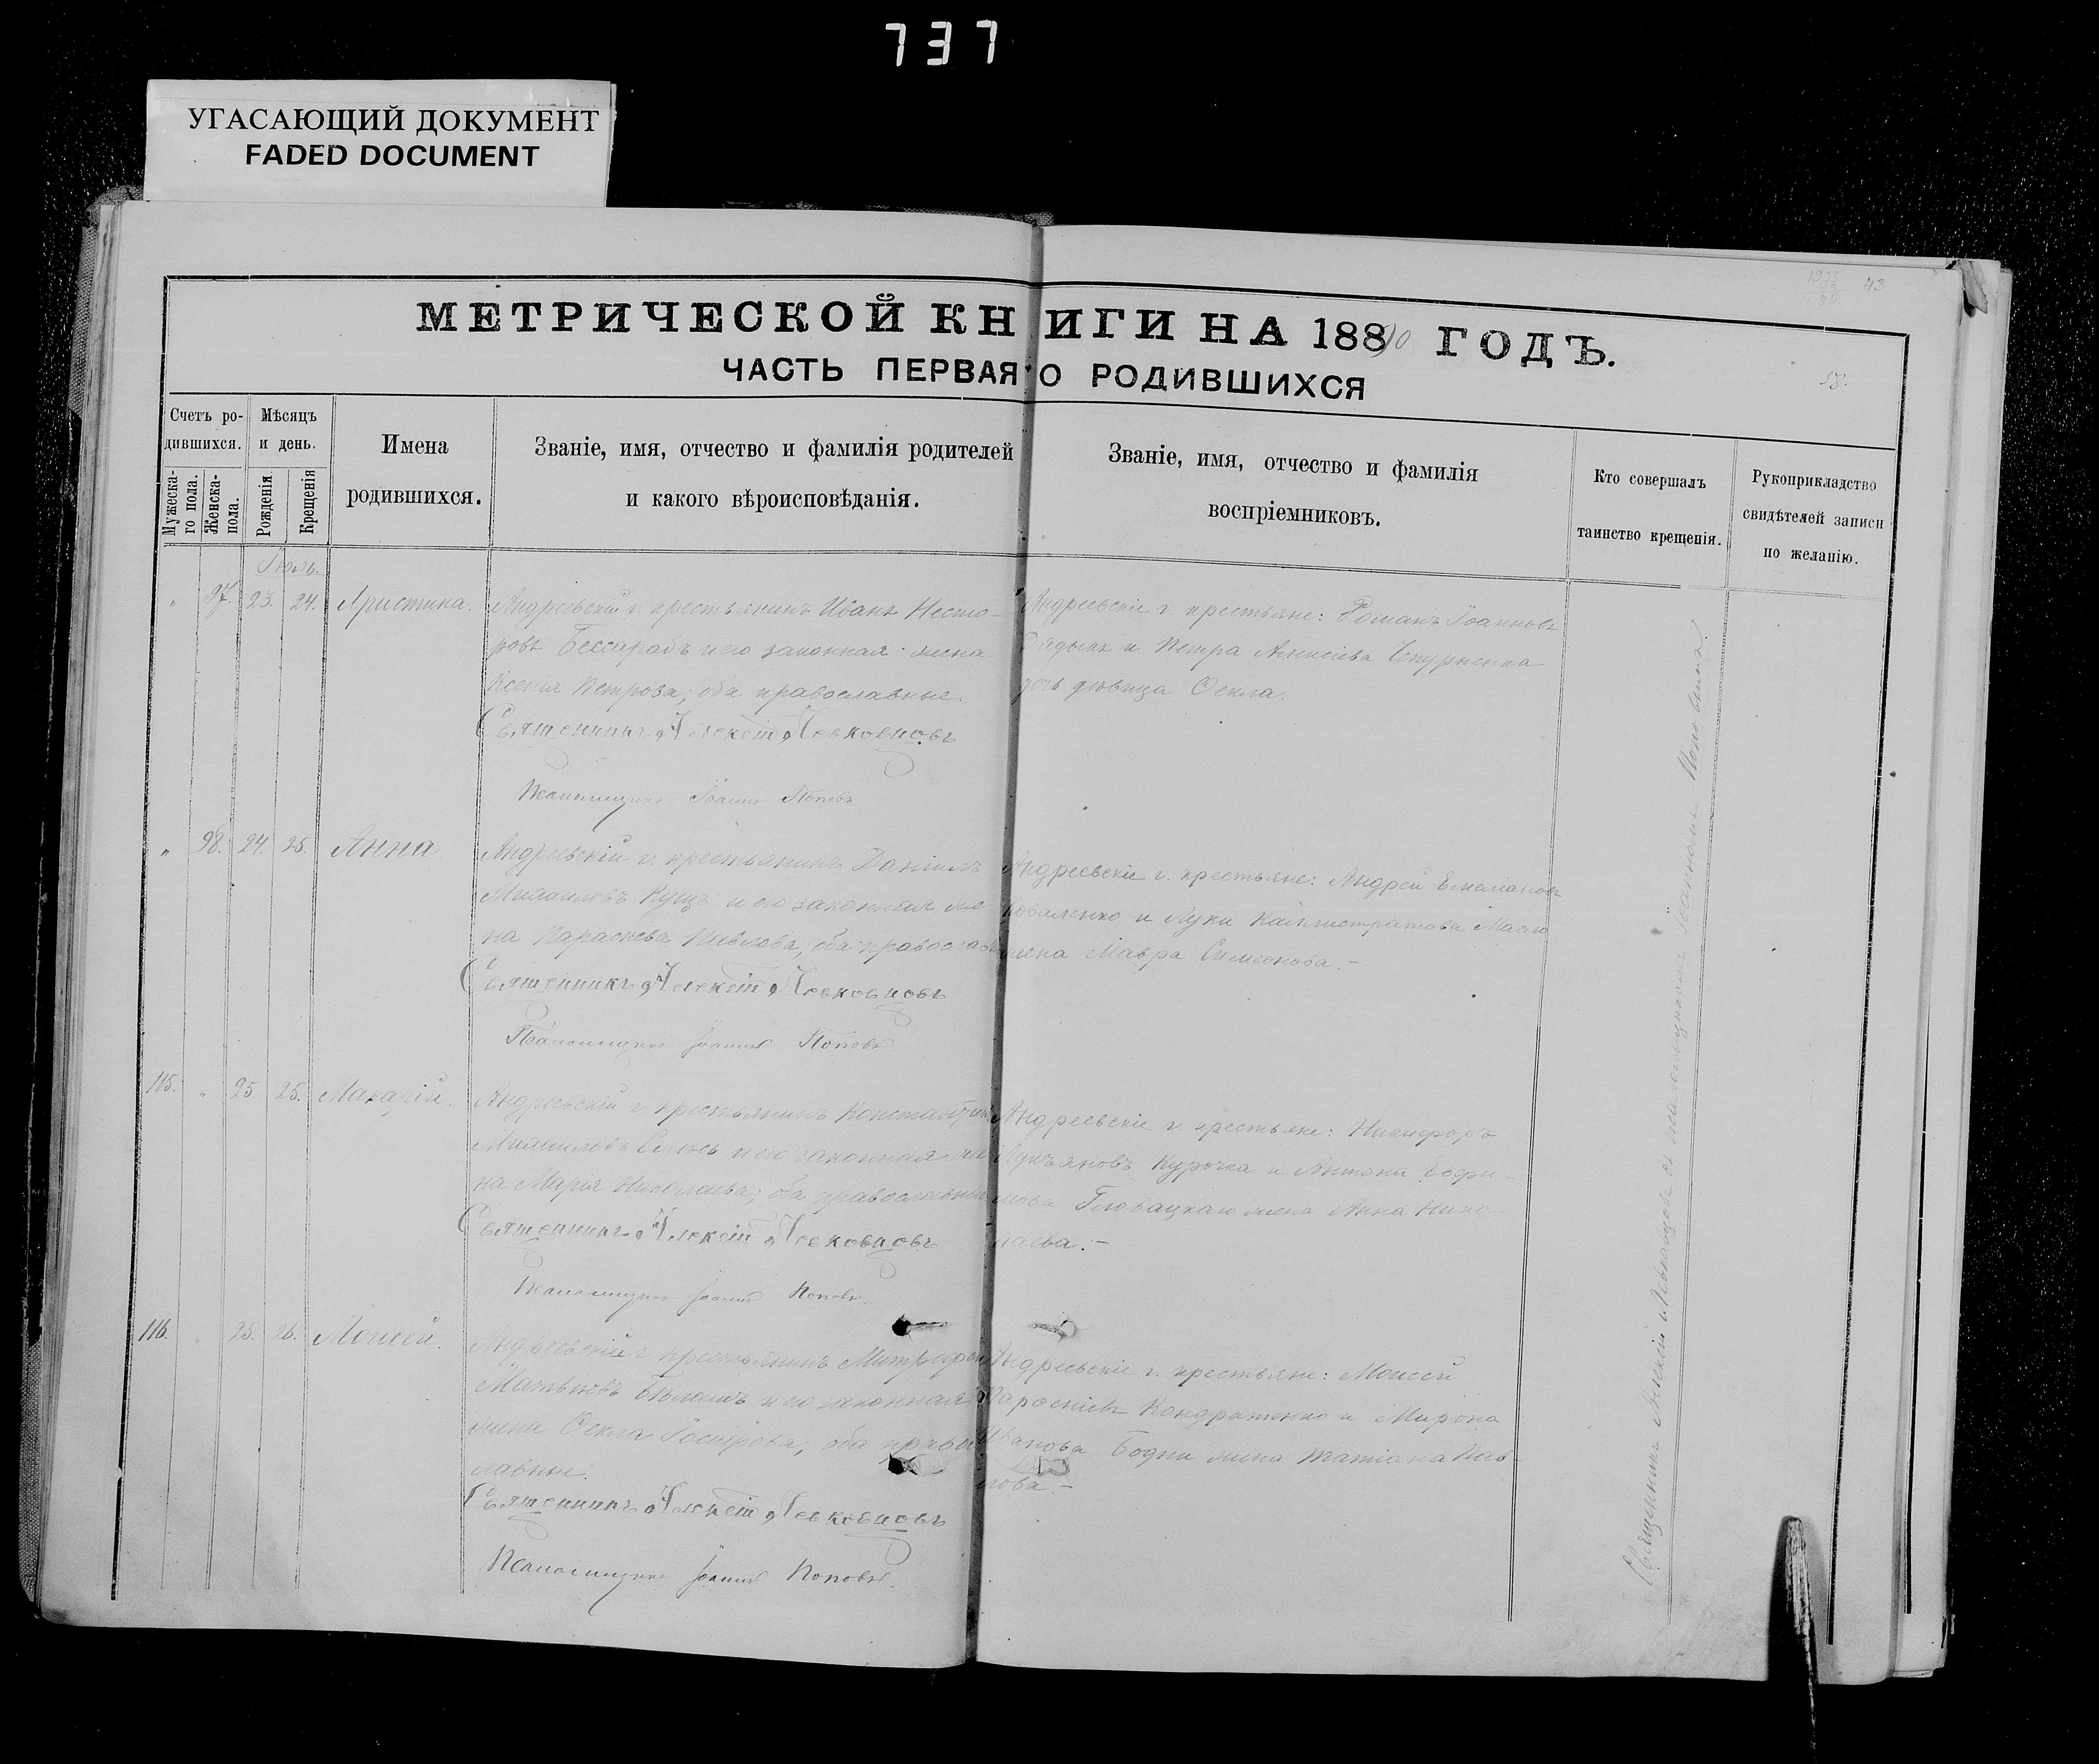 737
УГАСАЮЩИЙ ДОКУМЕНТ
FADED DOCUMENT
43
58.
МЕТРИЧЕСКОЙ КНИГИ НА 1890 ГОДЪ.
ЧАСТЬ ПЕРВАЯ О РОДИВШИХСЯ
Счетъ ро-
дившихся.
Мужеска-
го пола.
Женска-
пола.
Мѣсяцъ
и день.
Рожденія
Крещенія
Имена
родившихся.
Званіе, имя, отчество и фамилія родителей
и какого вѣроисповѣданія.
Званіе, имя, отчество и фамилія
воспріемниковъ.
Кто совершалъ
таинство крещенія.
Рукоприкладство
свидѣтелей записи
по желанію.
Іюль.
" 97. 23. 24. Христина.
Андреевскій г. крестьянинъ Иванъ Несто-
ровъ Бессарабъ и его законная жена
Ксенія Петрова; оба православные.
Священникъ Алексій Левковцовъ
Псаломщикъ Іоаннъ Поповъ
Андреевскіе г. крестьяне: Романъ Іоанновъ
и Петра Алексіева Чепурненка
дочь дѣвица Ѳекла.
" 98. 24. 25. Анна
Андреевскій г. крестьянинъ Даніилъ
Михаиловъ Кущъ и его законная же
на Параскева Павлова, оба православ
Священникъ Алексій Левковцовъ
Псаломщикъ Іоаннъ Поповъ
Андреевскіе г. крестьяне: Андрей Емеліановъ
Коваленко и Луки Каллистратова Масло
жена Мавра Симеонова.–
115. " 25. 25. Макарій.
Андреевскій г. крестьянинъ Константинъ
Михаиловъ и его законная же
на Марія Николаева; оба православные
Священникъ Алексій Левковцовъ
Псаломщикъ Іоаннъ Поповъ.
Андреевскіе г. крестьяне: Никифоръ
Лукьяновъ Курочка и Антона Еѳфи-
мова Гловацкаго жена Анна Нико-
лаева.–
116. " 25. 26. Моисей.
Андреевскій г. крестьянинъ Митрофанъ
и его законная
жена Ѳекла оба право
славные.
Священникъ Алексій Левковцовъ
Псаломщикъ Іоаннъ Поповъ.
Андреевскіе г. крестьяне: Моисей
Кондратенко и Мирона
Иванова Бодни жена Татіана Пав-
лова.–
Священникъ Алексій Левковцовъ съ псаломщикомъ Іоанномъ Поповымъ.